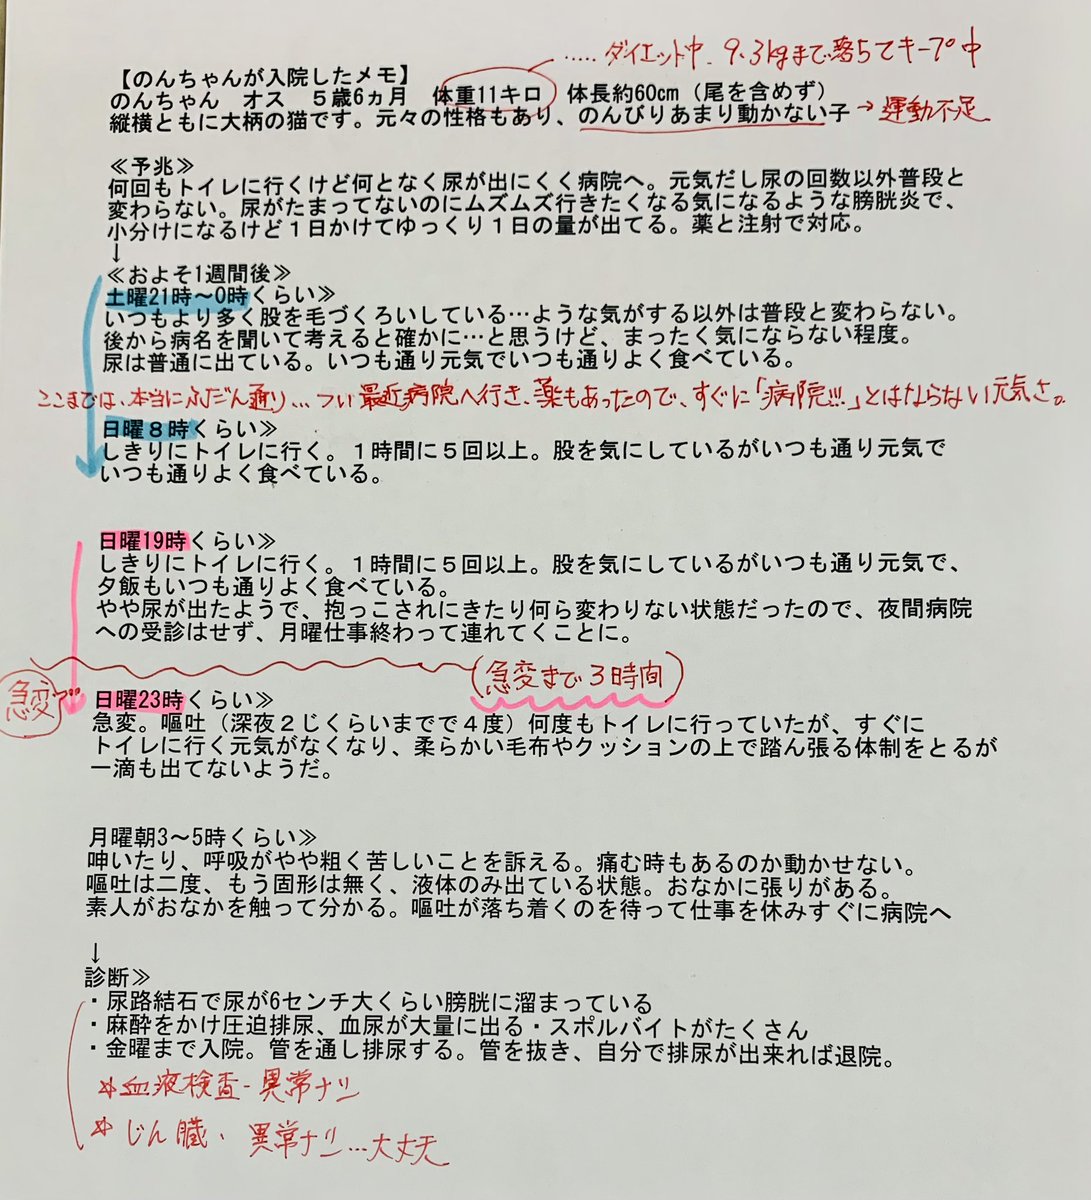 ‥‥ダイエット中. 9.3kgまで落ちてキープ中
【のんちゃんが入院したメモ】
のんちゃん　オス　５歳6ヵ月　体重11キロ　体長約60cm（尾を含めず）
縦横ともに大柄の猫です。元々の性格もあり、のんびりあまり動かない子 → 運動不足
≪予兆≫
何回もトイレに行くけど何となく尿が出にくく病院へ。元気だし尿の回数以外普段と
変わらない。尿がたまってないのにムズムズ行きたくなる気になるような膀胱炎で、
小分けになるけど１日かけてゆっくり１日の量が出てる。薬と注射で対応。
↓
≪およそ1週間後≫
土曜21時～0時くらい≫
いつもより多く股を毛づくろいしている…ような気がする以外は普段と変わらない。
後から病名を聞いて考えると確かに…と思うけど、まったく気にならない程度。
尿は普通に出ている。いつも通り元気でいつも通りよく食べている。
ここまでは、本当にふだん通り…つい最近病院へ行き、薬もあったので、すぐに「病院!!!」とはならない元気さ。
日曜８時くらい≫
しきりにトイレに行く。１時間に５回以上。股を気にしているがいつも通り元気で
いつも通りよく食べている。
日曜19時くらい≫
しきりにトイレに行く。１時間に５回以上。股を気にしているがいつも通り元気で、
夕飯もいつも通りよく食べている。
やや尿が出たようで、抱っこされにきたり何ら変わりない状態だったので、夜間病院
への受診はせず、月曜仕事終わって連れてくことに。
急変まで３時間
急変
日曜23時くらい≫
急変。嘔吐（深夜２じくらいまでで４度）何度もトイレに行っていたが、すぐに
トイレに行く元気がなくなり、柔らかい毛布やクッションの上で踏ん張る体制をとるが
一滴も出てないようだ。
月曜朝3～5時くらい≫
呻いたり、呼吸がやや粗く苦しいことを訴える。痛む時もあるのか動かせない。
嘔吐は二度、もう固形は無く、液体のみ出ている状態。おなかに張りがある。
素人がおなかを触って分かる。嘔吐が落ち着くのを待って仕事を休みすぐに病院へ
↓
診断≫
・尿路結石で尿が6センチ大くらい膀胱に溜まっている
・麻酔をかけ圧迫排尿、血尿が大量に出る・スポルバイトがたくさん
・金曜まで入院。管を通し排尿する。管を抜き、自分で排尿が出来れば退院。
＊血液検査-異常ナシ
＊じん臓、異常ナシ…大丈夫